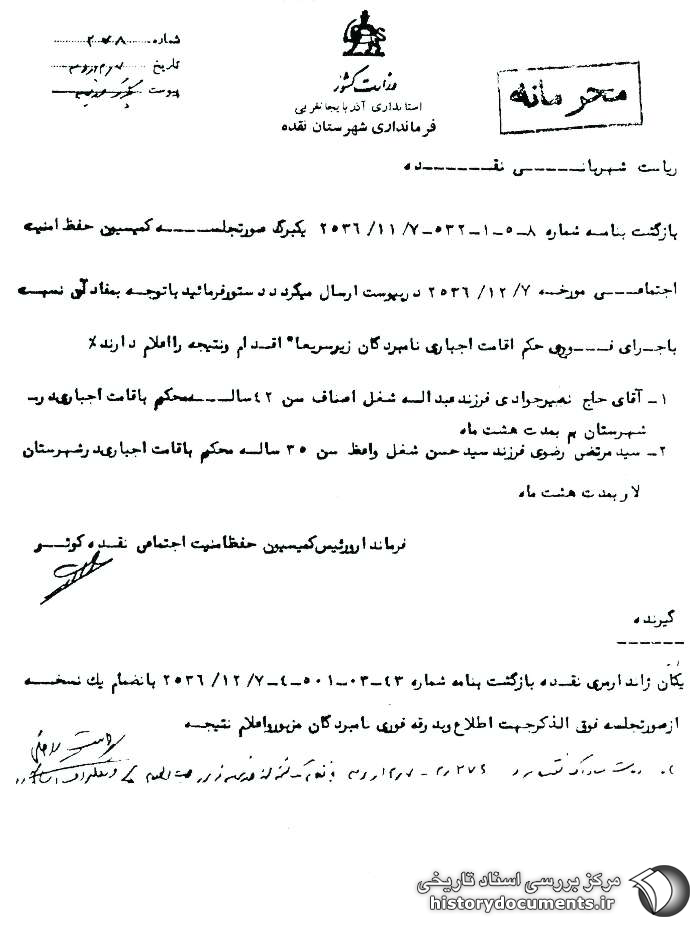 شماره
تاریخ
پیوست
وزارت کشور
استانداری آذربایجانغربی
فرمانداری شهرستان نقده
محرمانه
ریاست شهربانی نقده
بازگشت بنامه شماره ۸-۵-۱-۵۳۲-۱۱/۷/ ۲۵۳۶ یکبرگ صورتجلسه کمیسیون حفظ امنیت
اجتماعی مورخه ۱۲/۷/ ۲۵۳۶ درپیوست ارسال میگردد دستورفرمائید باتوجه بمفاد آن نسبت
باجرای فوری حکم اقامت اجباری نامبردگان زیرسریعا" اقدام ونتیجه رااعلام دارند٪
۱- آقای حاج نصیرجوادی فرزند عبداله شغل اصناف سن ۴۲ ساله محکم باقامت اجباری در
شهرستان بم بمدت هشت ماه
۲- سید مرتضی رضوی فرزند سید حسن شغل واعظ سن ۳۵ ساله محکم باقامت اجباری درشهرستان
لار بمدت هشت ماه
فرماندار ورئیس کمیسیون حفظ امنیت اجتماعی نقده کوثر
گیرنده
یکان ژاندارمری نقده بازگشت بنامه شماره ۴۳-۰۳-۵۰۱-۴-۱۲/۷/ ۲۵۳۶ بانضمام یك نسخه
ازصورتجلسه فوق الذکرجهت اطلاع وبدرقه فوری نامبردگان مزبورواعلام نتیجه
ریاست ساواک نقده
مرکز بررسی اسناد تاریخی
historydocuments.ir